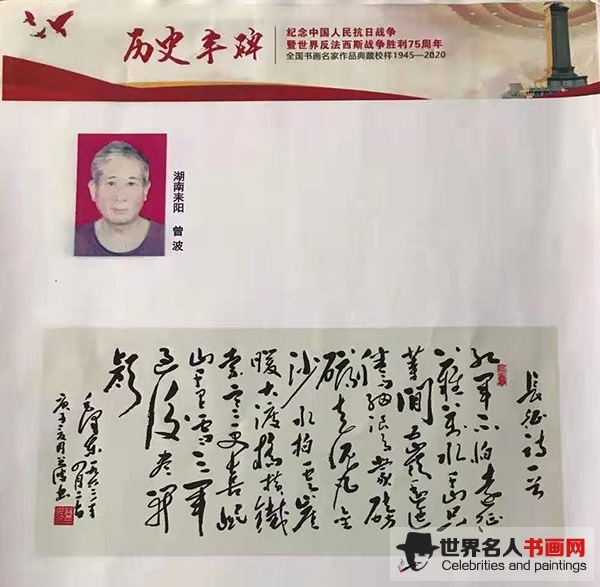 历史丰碑
纪念中国人民抗日战争
暨世界反法西斯战争胜利75周年
全国书画名家作品典藏校样1945—2020
湖南耒阳 曾波
長征诗一首
红军不怕远征
难万水千山只
等闲五岭逶迤
腾细浪乌蒙磅
礴走泥丸金
沙水拍云崖
暖大渡桥横鐵
索寒更喜岷
山千里雪三军
过后尽开
颜
毛泽东一九六二年
四月二十日
庚子三月曾波书
世界名人书画网
Celebrities and paintings